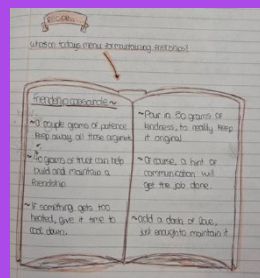 RECIPES
what's on todays menu for maintaining friendships!
friendship casserole ~
~ A couple grams of patience
keep away all those arguments
~ 40 grams of trust can help
build and maintain a
friendship.
~ If something gets too
heated, give it time to
cool down.
~ Pour in 50 grams of
kindness, to really keep
it original
~ Of course, a hint of
communication will
get the job done.
~ add a dash of love,
just enough to maintain it